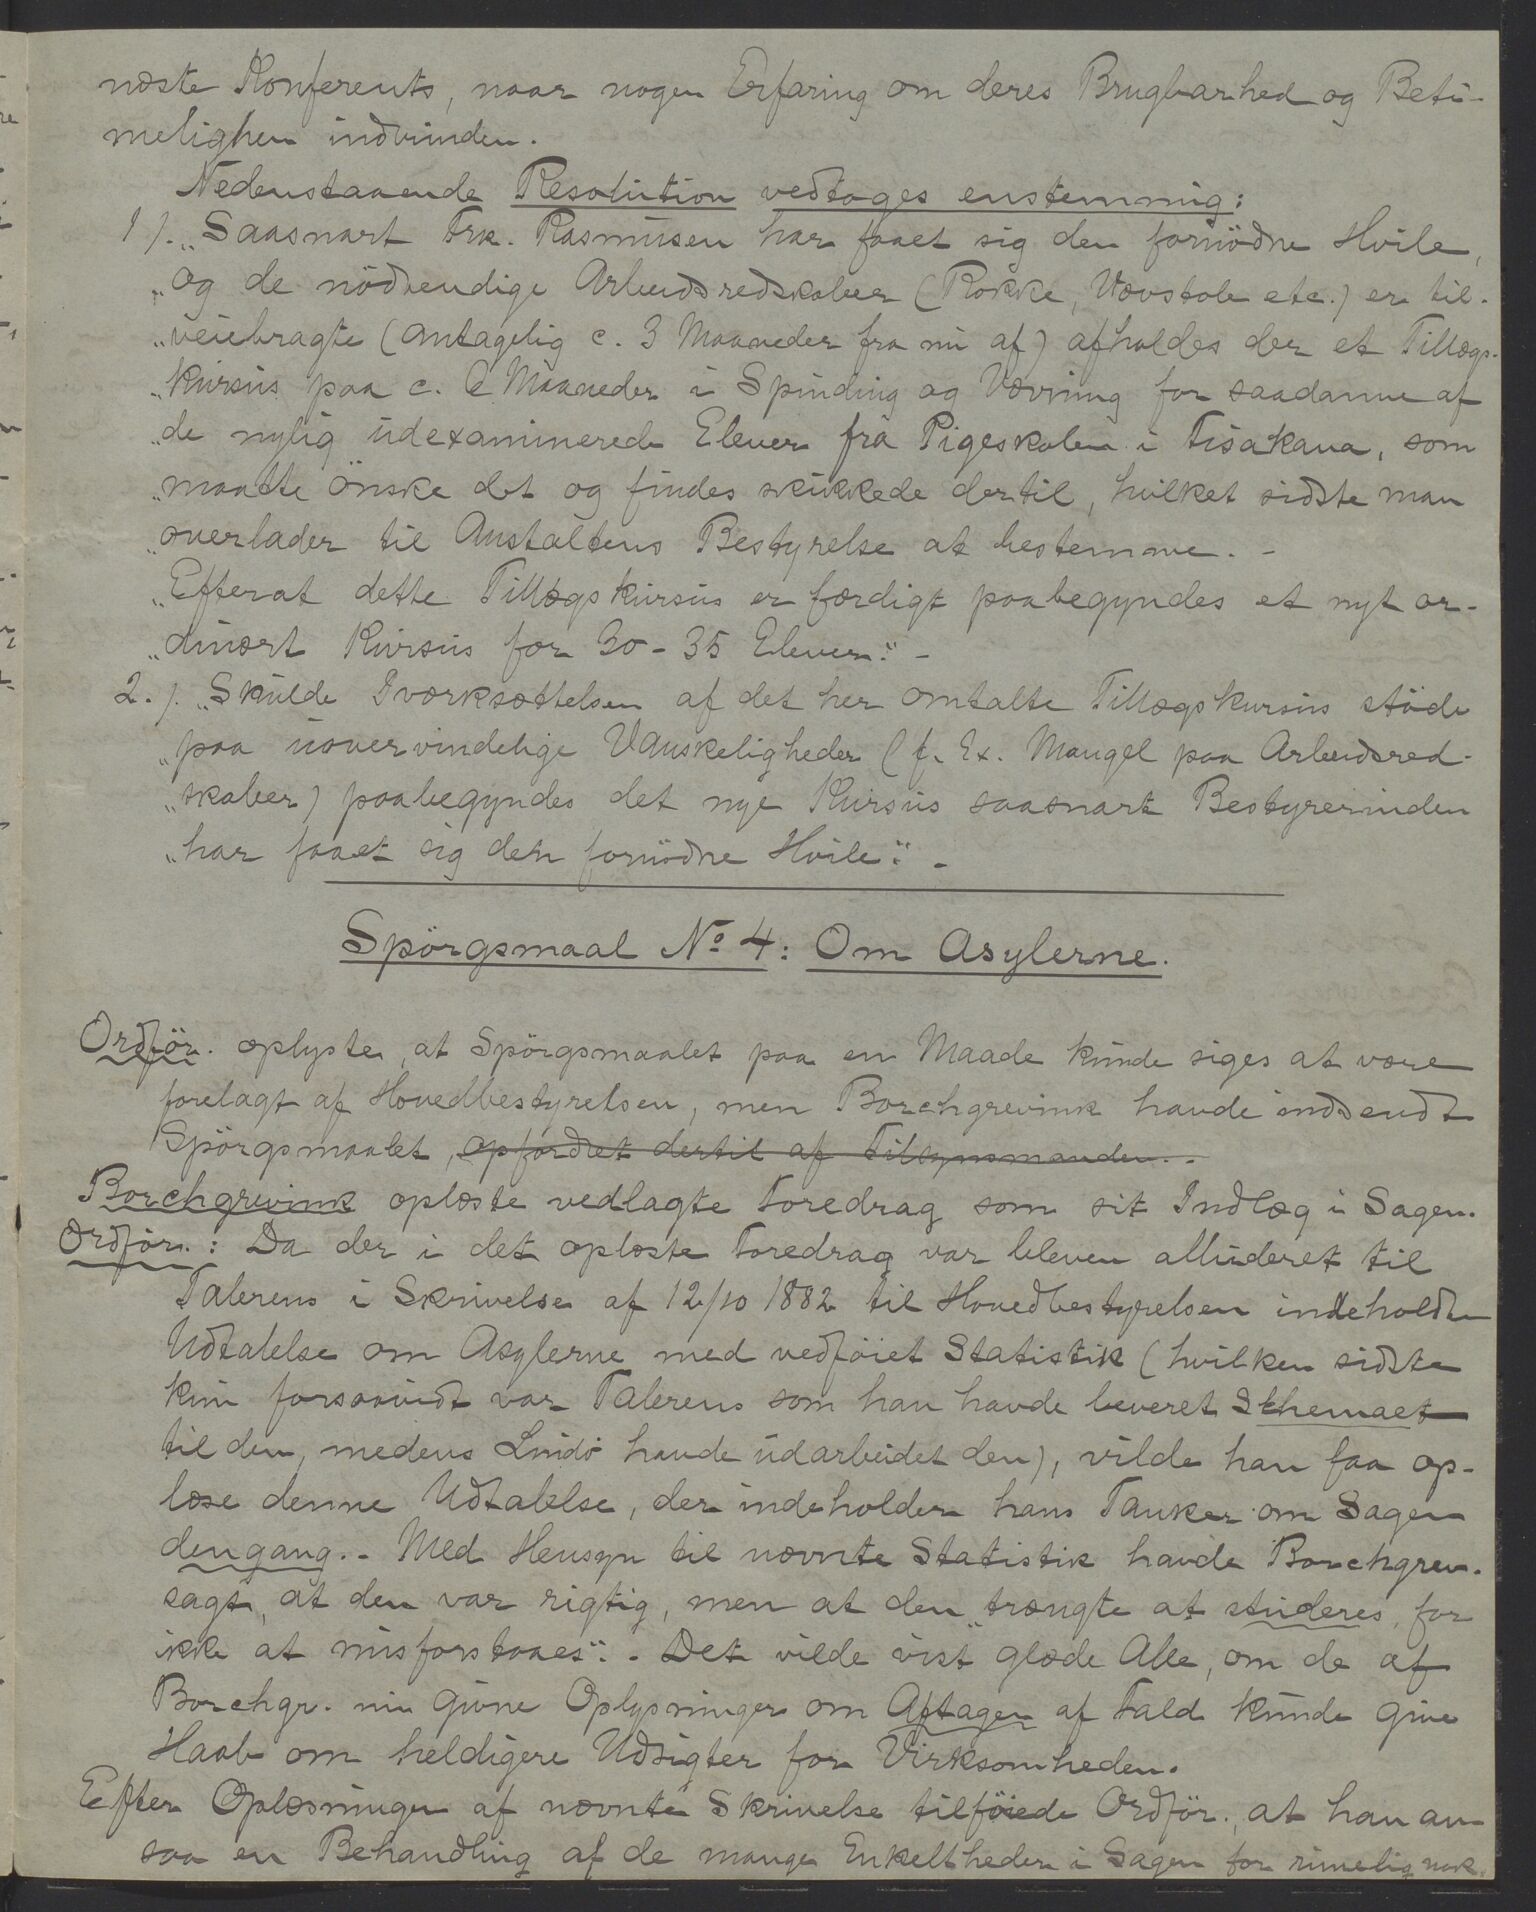 næste Konferents, naar nogen Erfaring om deres Brugbarhed og Beti-
meligheden indvinden.
Nedenstaaende Resolution vedtoges enstemmig:
1). „Saasnart Frk. Rasmusen har faaet sig den fornödne Hvile,
„og de nödvendige Arbeidsredskaber (Rokke, Vævstole etc.) er til-
„veiebragte (antagelig c. 3 Maaneder fra nu af) afholdes der et Tillægs-
„kursus paa c. 2 Maaneder i Spinding og Vævning for saadanne af
„de nylig udexaminerede Elever fra Pigeskolen i Tisakana, som
„maatte önske det og findes skikkede dertil, hvilket sidste man
„overlader til Anstaltens Bestyrelse at bestemme. -
„Efterat dette Tillægskursus er færdigt paabegyndes et nyt or-
„dinært Kursus for 30-35 Elever." -
2.). „Skulde Iværksættelsen af det her omtalte Tillægskursus stöde
„paa uovervindelige Vanskeligheder (f. Ex. Mangel paa Arbeidsred-
„skaber) paabegyndes det nye Kursus saasnart Bestyrerinden
„har faaet sig den fornödne Hvile". -
Spörgsmaal No 4: Om Asylerne.
Ordför. oplyste, at Spörgsmaalet paa en Maade kunde siges at være
forelagt af Hovedbestyrelsen, men Borchgrevink havde indsendt
Spörgsmaalet, opfordret dertil af Tilsynsmanden..
Borchgrevink oplæste vedlagte Foredrag som sit Indlæg i Sagen.
Ordför.: Da der i det oplæste Foredrag var bleven alluderet til
Talerens i Skrivelse af 12/10 1882 til Hovedbestyrelsen indeholdte
Udtalelse om Asylerne med vedföiet Statistik (hvilken sidste
kun forsaavidt var Talerens som han havde leveret Schemaet
til den, medens Lindö havde udarbeidet den), vilde han faa op-
læse denne Udtalelse, der indeholder hans Tanker om Sagen
dengang.- Med Hensyn til nævnte Statistik havde Borchgrev.
sagt, at den var rigtig, men at den „trængte at studeres for
ikke at misforstaaes". - Det vilde vist glæde Alle, om de af
Borchgr. nu givne Oplysninger om Aftagen af Fald kunde give
Haab om heldigere Udsigter for Virksomheden.
Efter Oplæsningen af nævnte Skrivelse tilföiede Ordför., at han an-
saa en Behandling af de mange Enkeltheder i Sagen for rimelig nok.